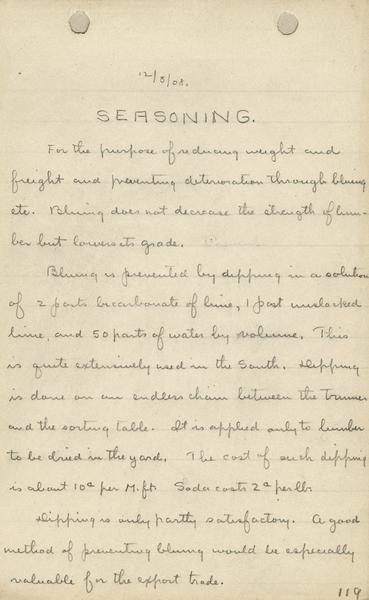 12/8/08.
SEASONING.
For the purpose of reducing weight and
freight and preventing deterioration through bluing
etc. Bluing does not decrease the strength of lum-
ber but lowers its grade.
Bluing is prevented by dipping in a solution
of 2 parts bicarbonate of lime, 1 part unslacked
lime, and 50 parts of water by volume. This
is quite extensively used in the South. Dipping
is done on an endless chain between the trimmer
and the sorting table. It is applied only to lumber
to be dried in the yard. The cost of such dipping
is about 10¢ per M. ft. Soda costs 2¢ per lb.
Dipping is only partly satisfactory. A good
method of preventing bluing would be especially
valuable for the export trade.
119